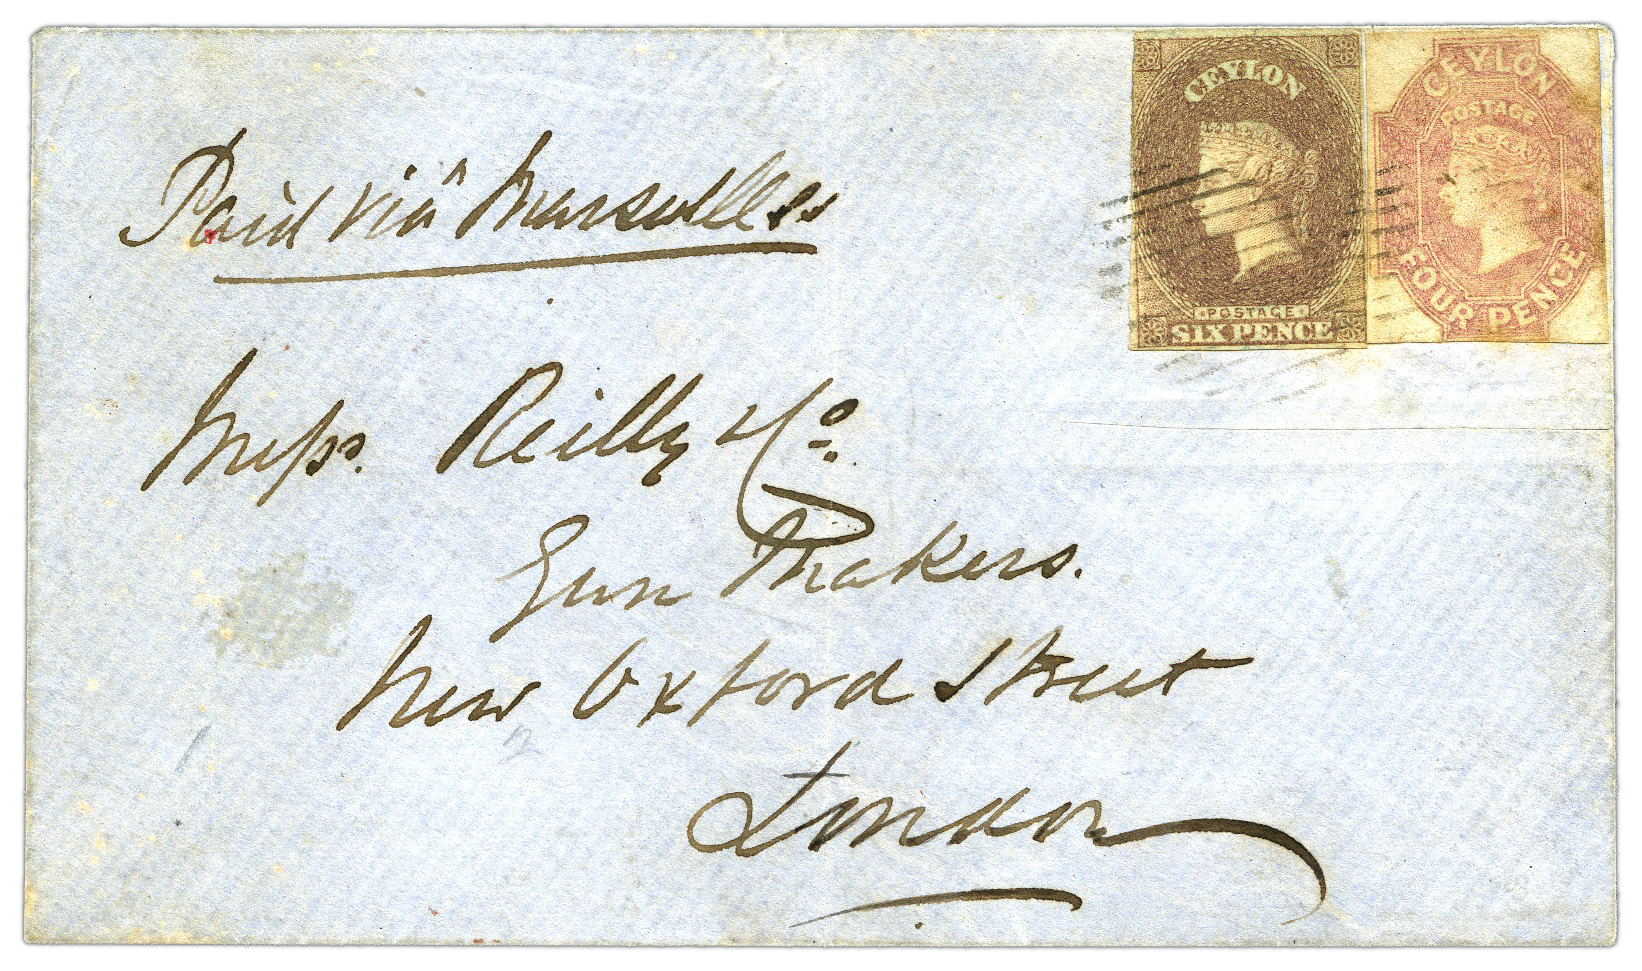 CEYLON
POSTAGE
SIX PENCE
CEYLON
POSTAGE
FOUR PENCE
Paid viâ Marseilles
Messrs. Reilly & Co.
Gun Makers.
New Oxford Street
London